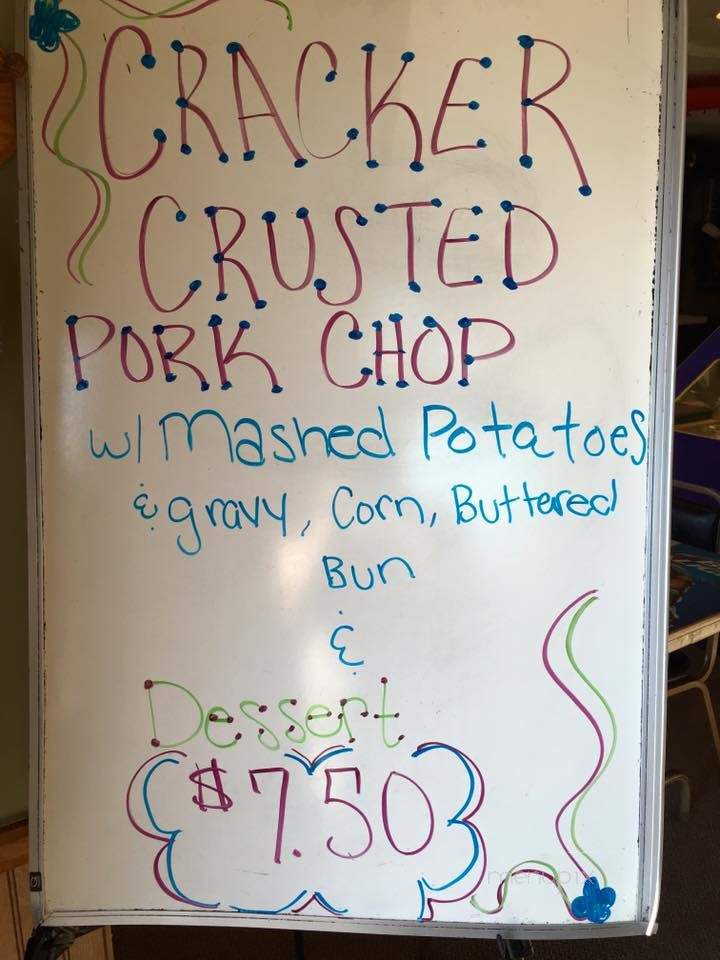 CRACKER
CRUSTED
PORK CHOP
w/ Mashed Potatoes
& gravy, Corn, Buttered
Bun
&
Dessert
$7.50